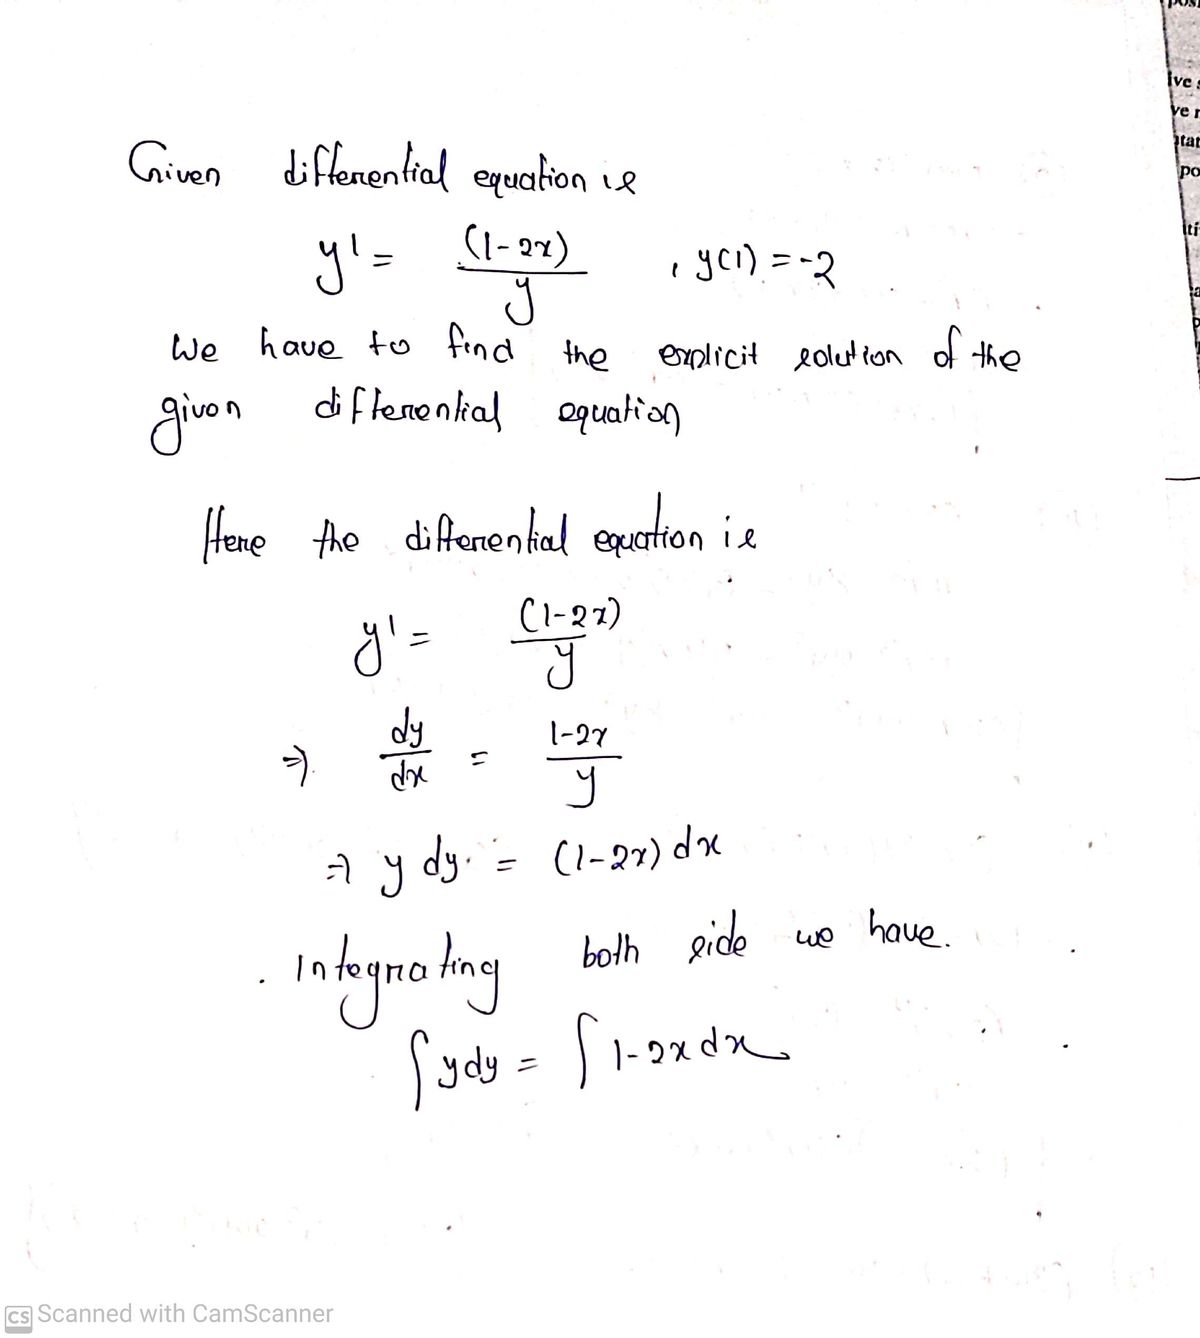 Given differential equation is
y' = (1-2x)/y , y(1) = -2
We have to find the explicit solution of the
given differential equation
Here the differential equation is
y' = (1-2x)/y
⇒ dy/dx = 1-2x/y
⇒ y dy = (1-2x) dx
Integrating both side we have.
∫ y dy = ∫ 1-2x dx
CS Scanned with CamScanner